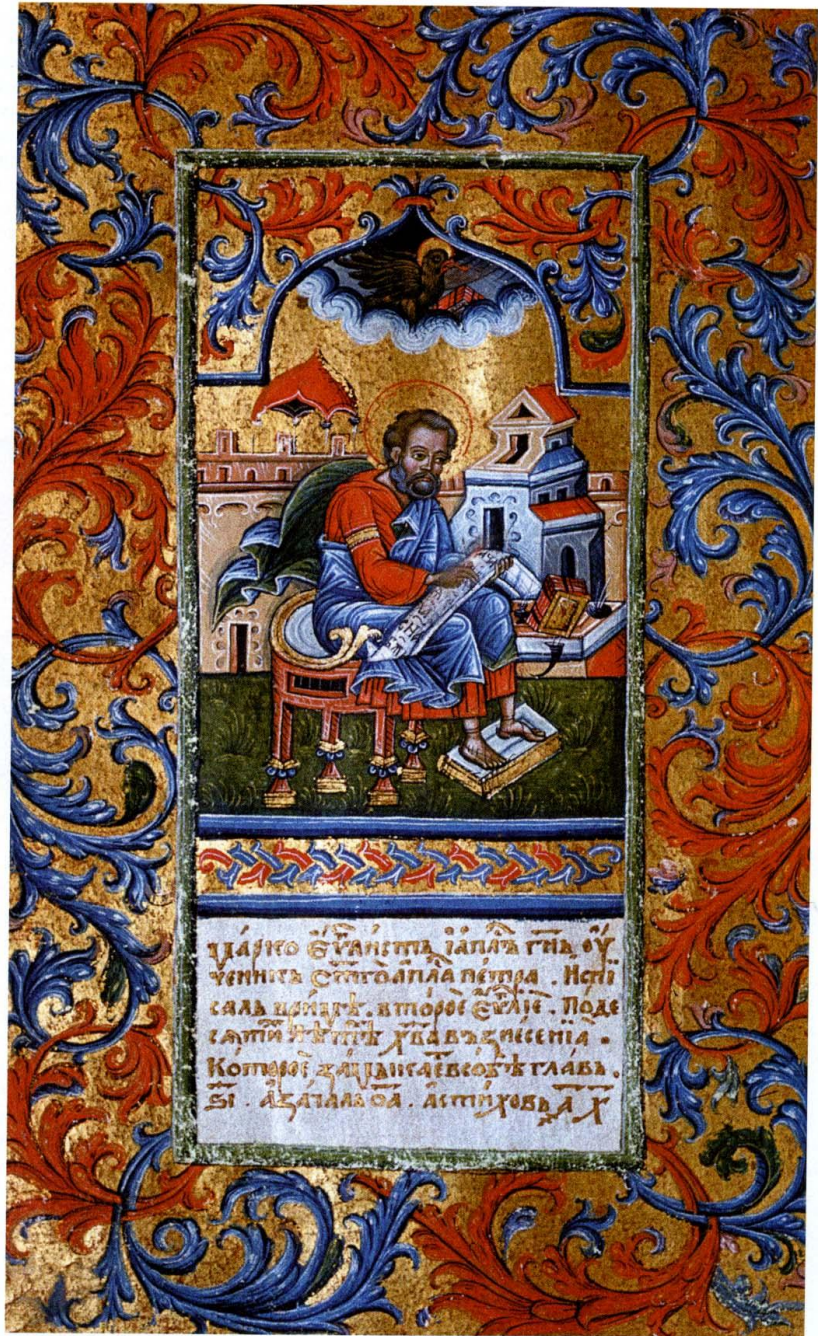 Ма́рко є҆ѵⷢ҇листъ і҆апⷭ҇лъ гн҃ь ѹ҆
ченикъ ст҃гѡ апⷭ҇ла пе́тра . Испи
салъ в ри́мѣ . в то́рое є҆ѵⷢ҇лїе . По де
сѧти лѣтѣⷯ х҃ва възнесенїа .
Ко́торое замыкае́т в со́бѣ гла́въ .
ѕ҃і . а҆ зача́лъ о҃а . а҆ стихо́въ ҂а х҃